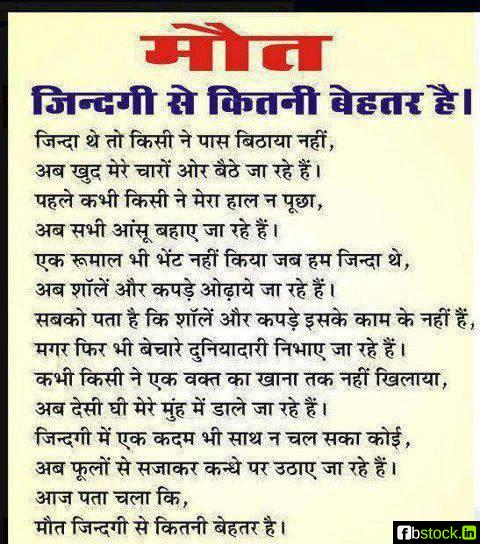 मौत
जिन्दगी से कितनी बेहतर है।
जिन्दा थे तो किसी ने पास बिठाया नहीं,
अब खुद मेरे चारों ओर बैठे जा रहे हैं।
पहले कभी किसी ने मेरा हाल न पूछा,
अब सभी आंसू बहाए जा रहे हैं।
एक रूमाल भी भेंट नहीं किया जब हम जिन्दा थे,
अब शॉलें और कपड़े ओढ़ाये जा रहे हैं।
सबको पता है कि शॉलें और कपड़े इसके काम के नहीं हैं,
मगर फिर भी बेचारे दुनियादारी निभाए जा रहे हैं।
कभी किसी ने एक वक्त का खाना तक नहीं खिलाया,
अब देसी घी मेरे मुंह में डाले जा रहे हैं।
जिन्दगी में एक कदम भी साथ न चल सका कोई,
अब फूलों से सजाकर कन्धे पर उठाए जा रहे हैं।
आज पता चला कि,
मौत जिन्दगी से कितनी बेहतर है।
fbstock.in